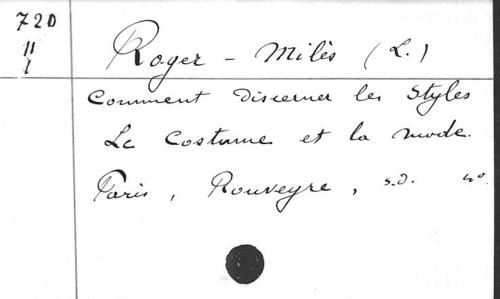 720
II
I
Roger - Milès (L.)
Comment discerner les styles
Le Costume et la mode.
Paris, Rouveyre, s.d. 4º.